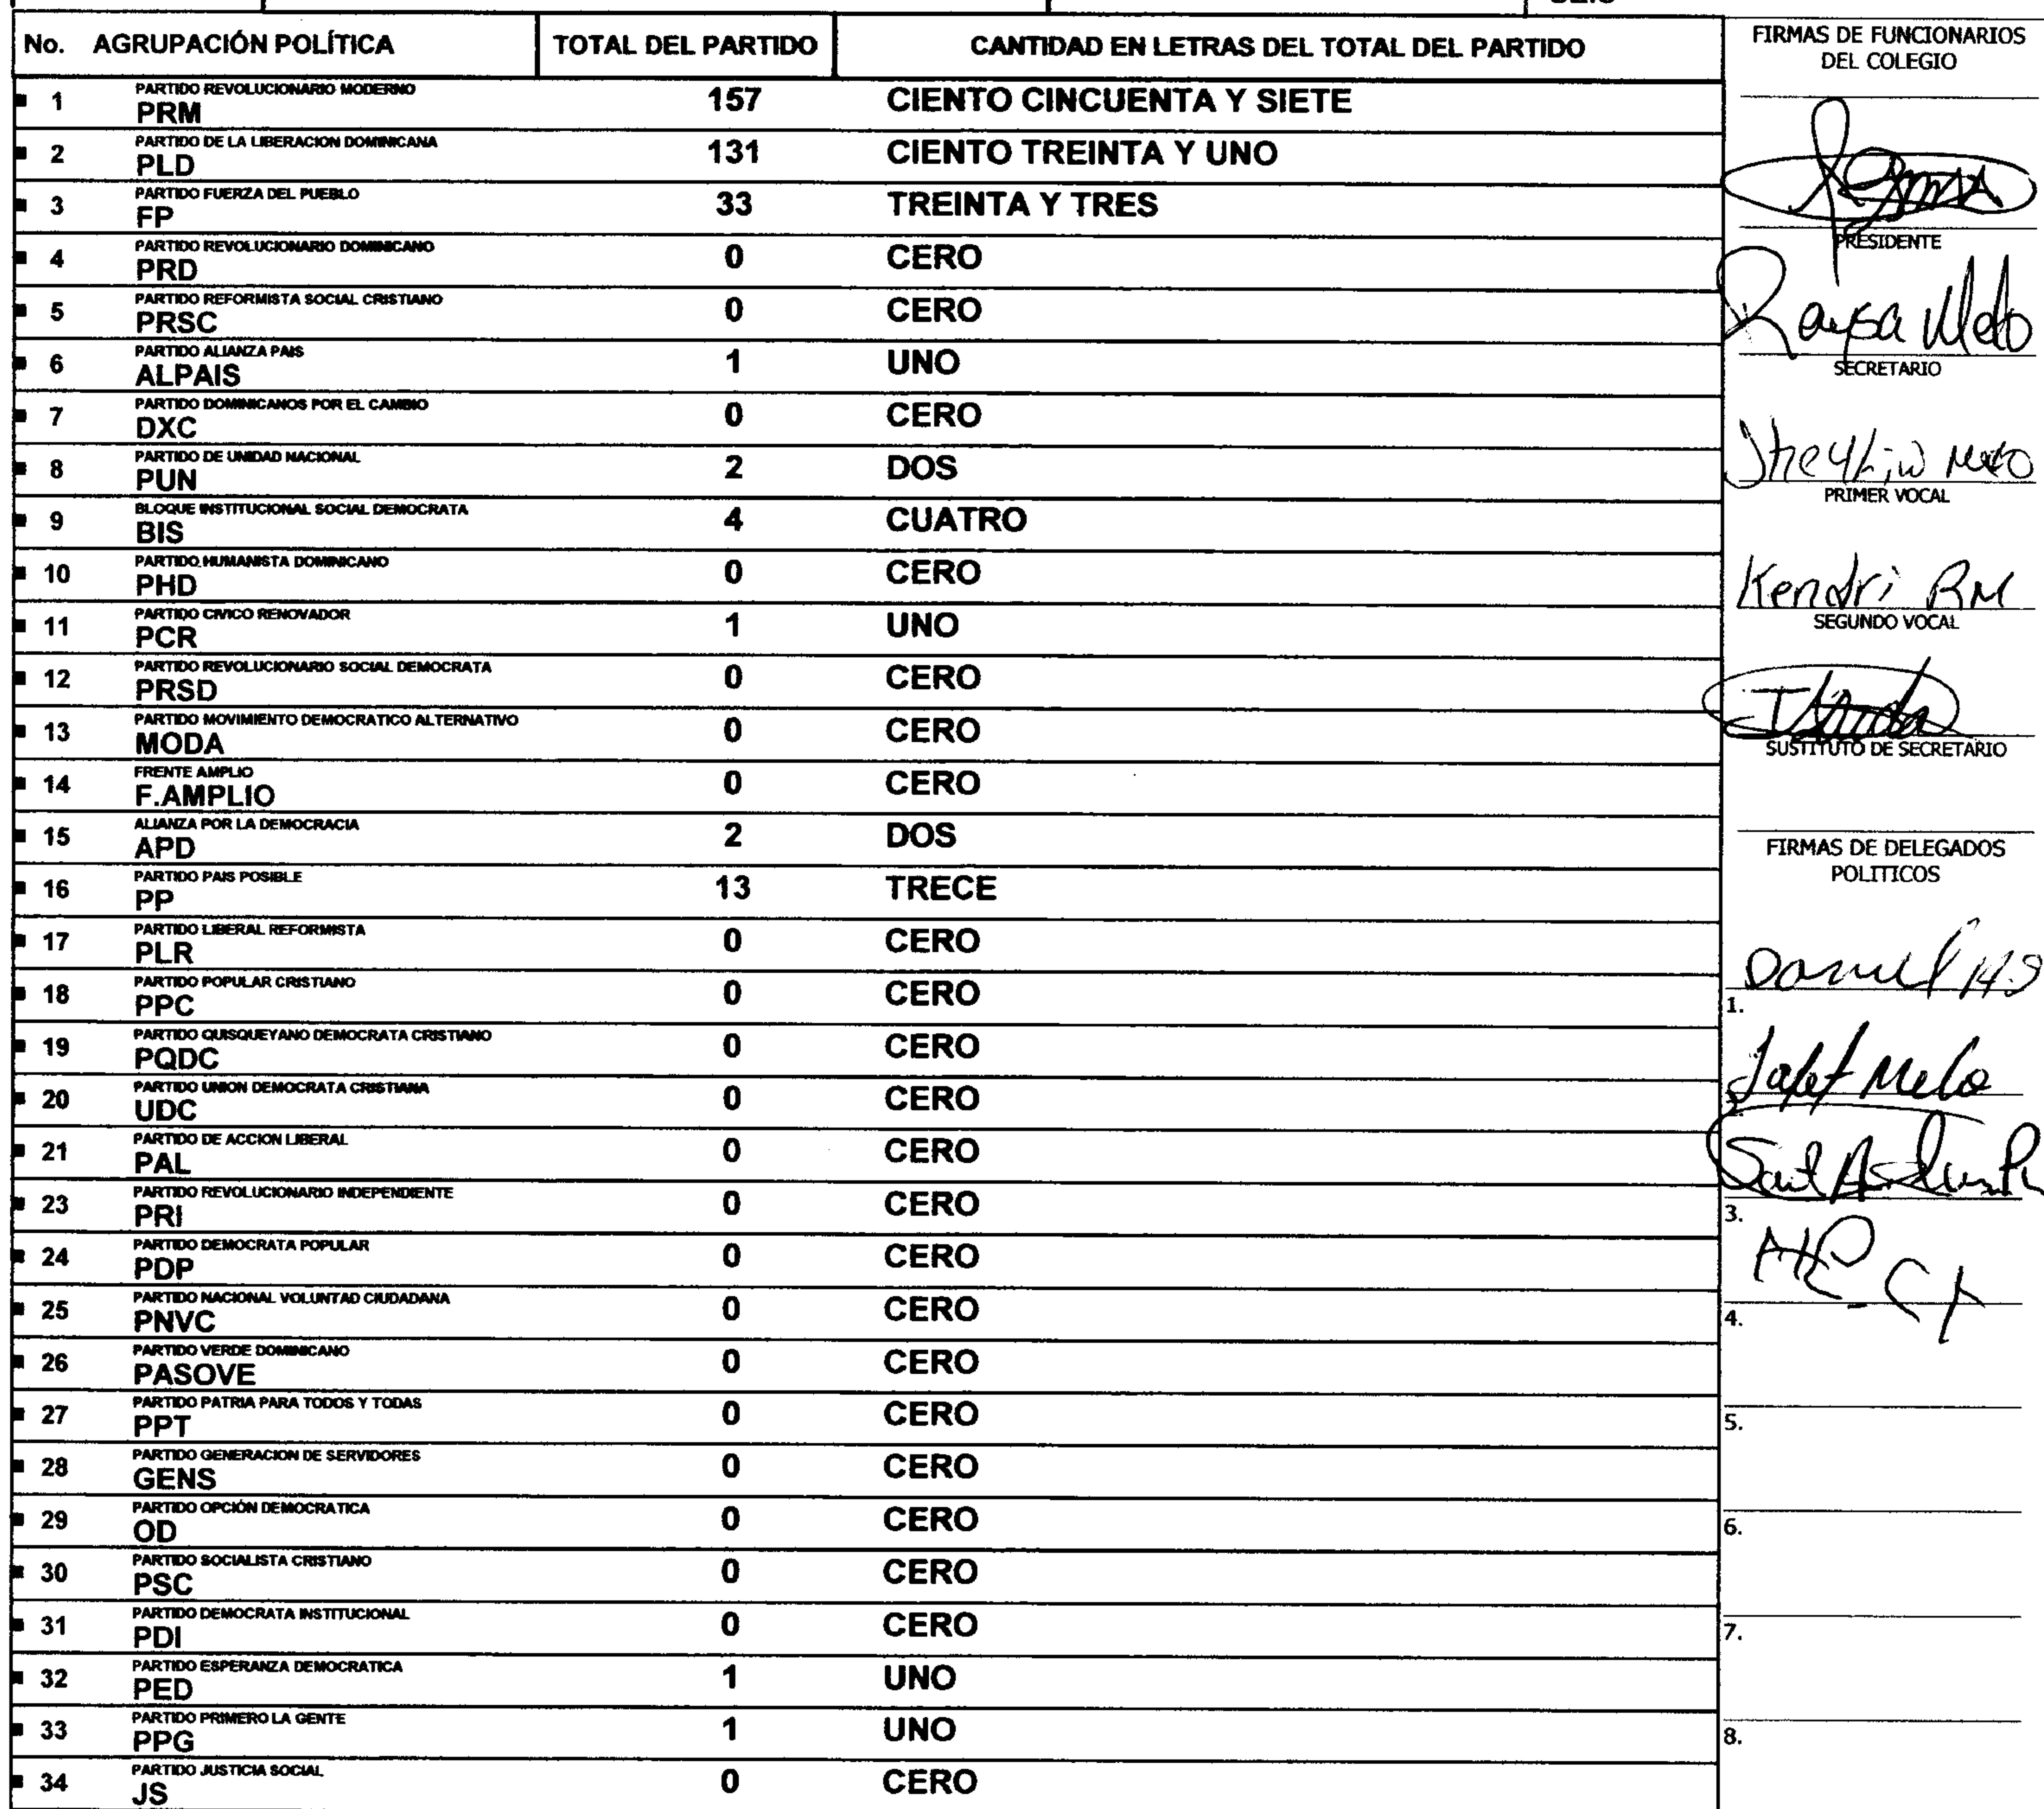 No. AGRUPACIÓN POLÍTICA TOTAL DEL PARTIDO CANTIDAD EN LETRAS DEL TOTAL DEL PARTIDO
PARTIDO REVOLUCIONARIO MODERNO
1 PRM 157 CIENTO CINCUENTA Y SIETE
PARTIDO DE LA LIBERACION DOMINICANA
2 PLD 131 CIENTO TREINTA Y UNO
PARTIDO FUERZA DEL PUEBLO
3 FP 33 TREINTA Y TRES
PARTIDO REVOLUCIONARIO DOMINICANO
4 PRD 0 CERO
PARTIDO REFORMISTA SOCIAL CRISTIANO
5 PRSC 0 CERO
PARTIDO ALIANZA PAIS
6 ALPAIS 1 UNO
PARTIDO DOMINICANOS POR EL CAMBIO
7 DXC 0 CERO
PARTIDO DE UNIDAD NACIONAL
8 PUN 2 DOS
BLOQUE INSTITUCIONAL SOCIAL DEMOCRATA
9 BIS 4 CUATRO
PARTIDO HUMANISTA DOMINICANO
10 PHD 0 CERO
PARTIDO CIVICO RENOVADOR
11 PCR 1 UNO
PARTIDO REVOLUCIONARIO SOCIAL DEMOCRATA
12 PRSD 0 CERO
PARTIDO MOVIMIENTO DEMOCRATICO ALTERNATIVO
13 MODA 0 CERO
FRENTE AMPLIO
14 F.AMPLIO 0 CERO
ALIANZA POR LA DEMOCRACIA
15 APD 2 DOS
PARTIDO PAIS POSIBLE
16 PP 13 TRECE
PARTIDO LIBERAL REFORMISTA
17 PLR 0 CERO
PARTIDO POPULAR CRISTIANO
18 PPC 0 CERO
PARTIDO QUISQUEYANO DEMOCRATA CRISTIANO
19 PQDC 0 CERO
PARTIDO UNION DEMOCRATA CRISTIANA
20 UDC 0 CERO
PARTIDO DE ACCION LIBERAL
21 PAL 0 CERO
PARTIDO REVOLUCIONARIO INDEPENDIENTE
23 PRI 0 CERO
PARTIDO DEMOCRATA POPULAR
24 PDP 0 CERO
PARTIDO NACIONAL VOLUNTAD CIUDADANA
25 PNVC 0 CERO
PARTIDO VERDE DOMINICANO
26 PASOVE 0 CERO
PARTIDO PATRIA PARA TODOS Y TODAS
27 PPT 0 CERO
PARTIDO GENERACION DE SERVIDORES
28 GENS 0 CERO
PARTIDO OPCIÓN DEMOCRATICA
29 OD 0 CERO
PARTIDO SOCIALISTA CRISTIANO
30 PSC 0 CERO
PARTIDO DEMOCRATA INSTITUCIONAL
31 PDI 0 CERO
PARTIDO ESPERANZA DEMOCRATICA
32 PED 1 UNO
PARTIDO PRIMERO LA GENTE
33 PPG 1 UNO
PARTIDO JUSTICIA SOCIAL
34 JS 0 CERO
FIRMAS DE FUNCIONARIOS
DEL COLEGIO
PRESIDENTE
Raysa Melo
SECRETARIO
PRIMER VOCAL
Kendri RM
SEGUNDO VOCAL
SUSTITUTO DE SECRETARIO
FIRMAS DE DELEGADOS
POLITICOS
1.
Jafet Melo
3.
4.
5.
6.
7.
8.